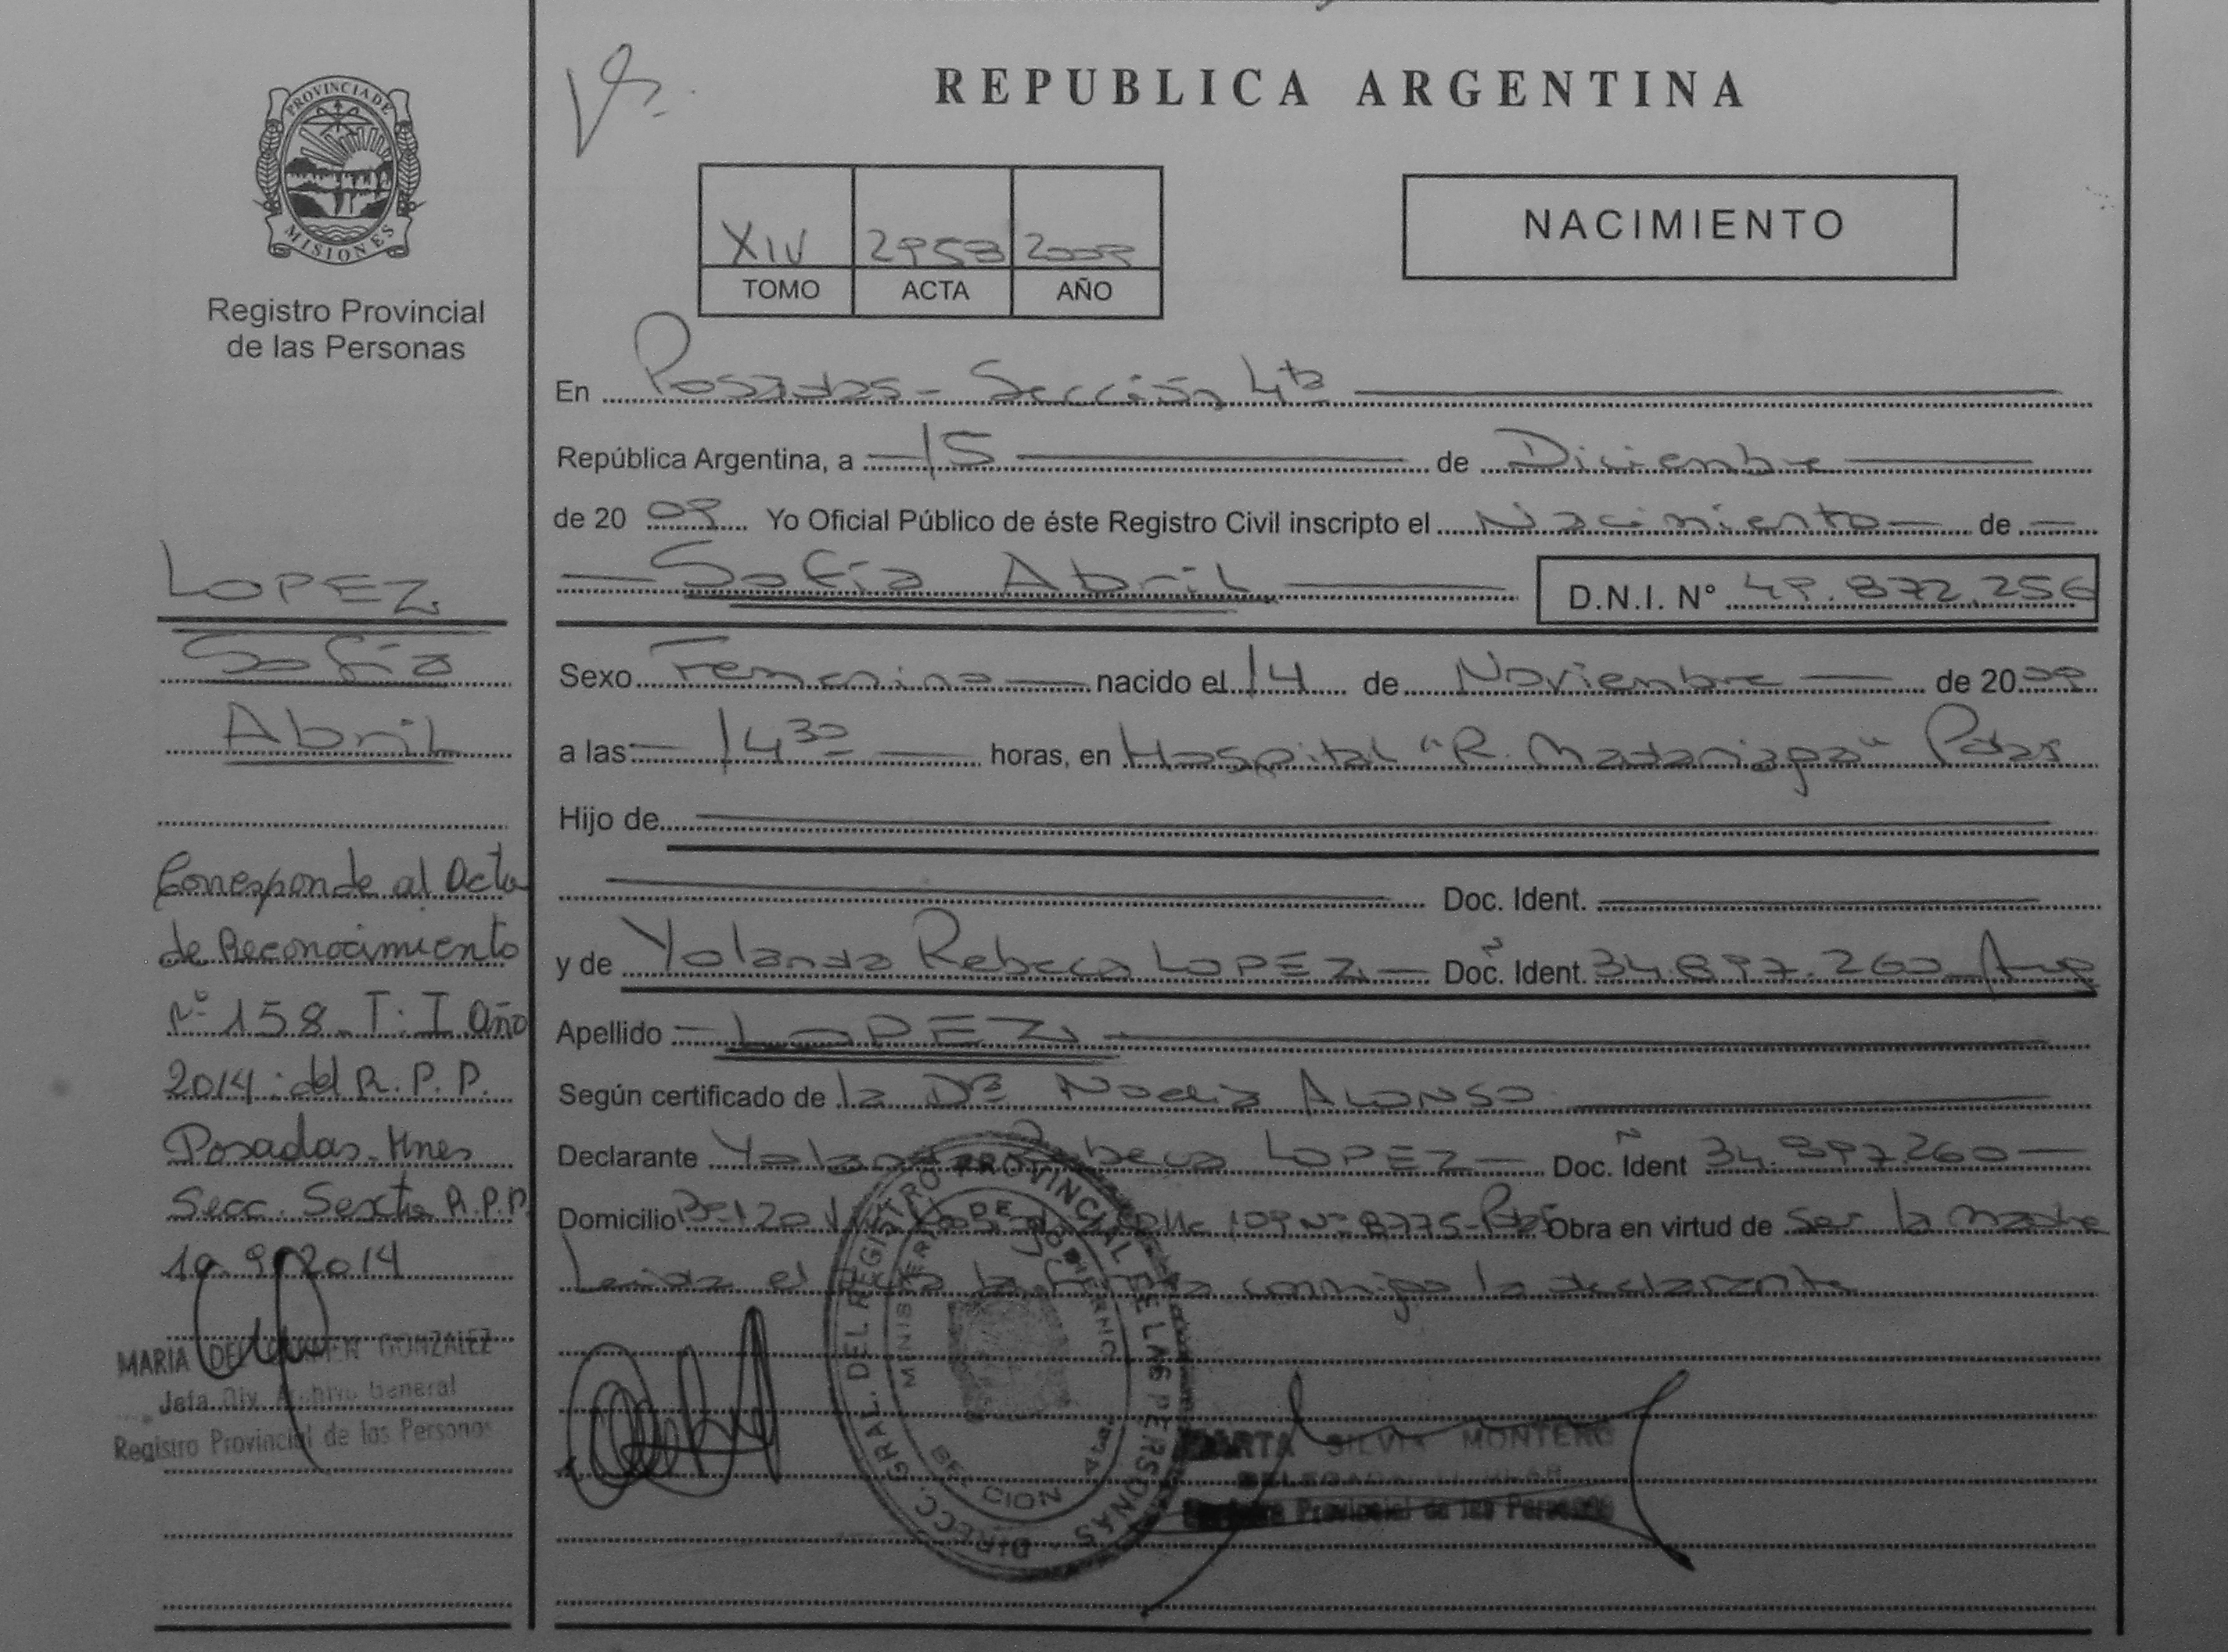 PROVINCIA DE
MISIONES
Registro Provincial
de las Personas
LOPEZ
Sofía
Abril
Corresponde al Acta
de Reconocimiento
Nº 158 T. I Año
2014 del R. P. P.
Posadas Mnes
Secc. Sexta R.P.P.
10 9 2014
MARIA DEL CARMEN GONZALEZ
Jefa Div. Archivo General
Registro Provincial de las Personas
REPUBLICA ARGENTINA
XIV 2958 2009
TOMO ACTA AÑO
NACIMIENTO
En Posadas - Sección 4ta
República Argentina, a 15 de Diciembre
de 20 09 Yo Oficial Público de éste Registro Civil inscripto el Nacimiento de
Sofía Abril D.N.I. N° 49.872.256
Sexo Femenino nacido el 14 de Noviembre de 20 09
a las 14 30 horas, en Hospital "R. Madariaga" Pdas
Hijo de
Doc. Ident.
y de Yolanda Rebeca LOPEZ Doc. Ident. 34.897.260 Arg
Apellido LOPEZ
Según certificado de la Dra Noelia ALONSO
Declarante Yolanda Rebeca LOPEZ Doc. Ident 34.897.260
Domicilio Bº 120 109 Nº 8775 - Obra en virtud de ser la madre
Leída el acta la firma conmigo la declarante
DIRECC. GRAL. DEL REGISTRO PROVINCIAL DE LAS PERSONAS
MINISTERIO DE GOBIERNO
MARTA SILVIA MONTERO
DELEGADA TITULAR
Registro Provincial de las Personas